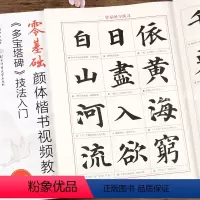 零基础
颜体楷书视频教
《多宝塔碑》技法入门
白日依
山盡黄
河入海
流欲窮
粉象优品